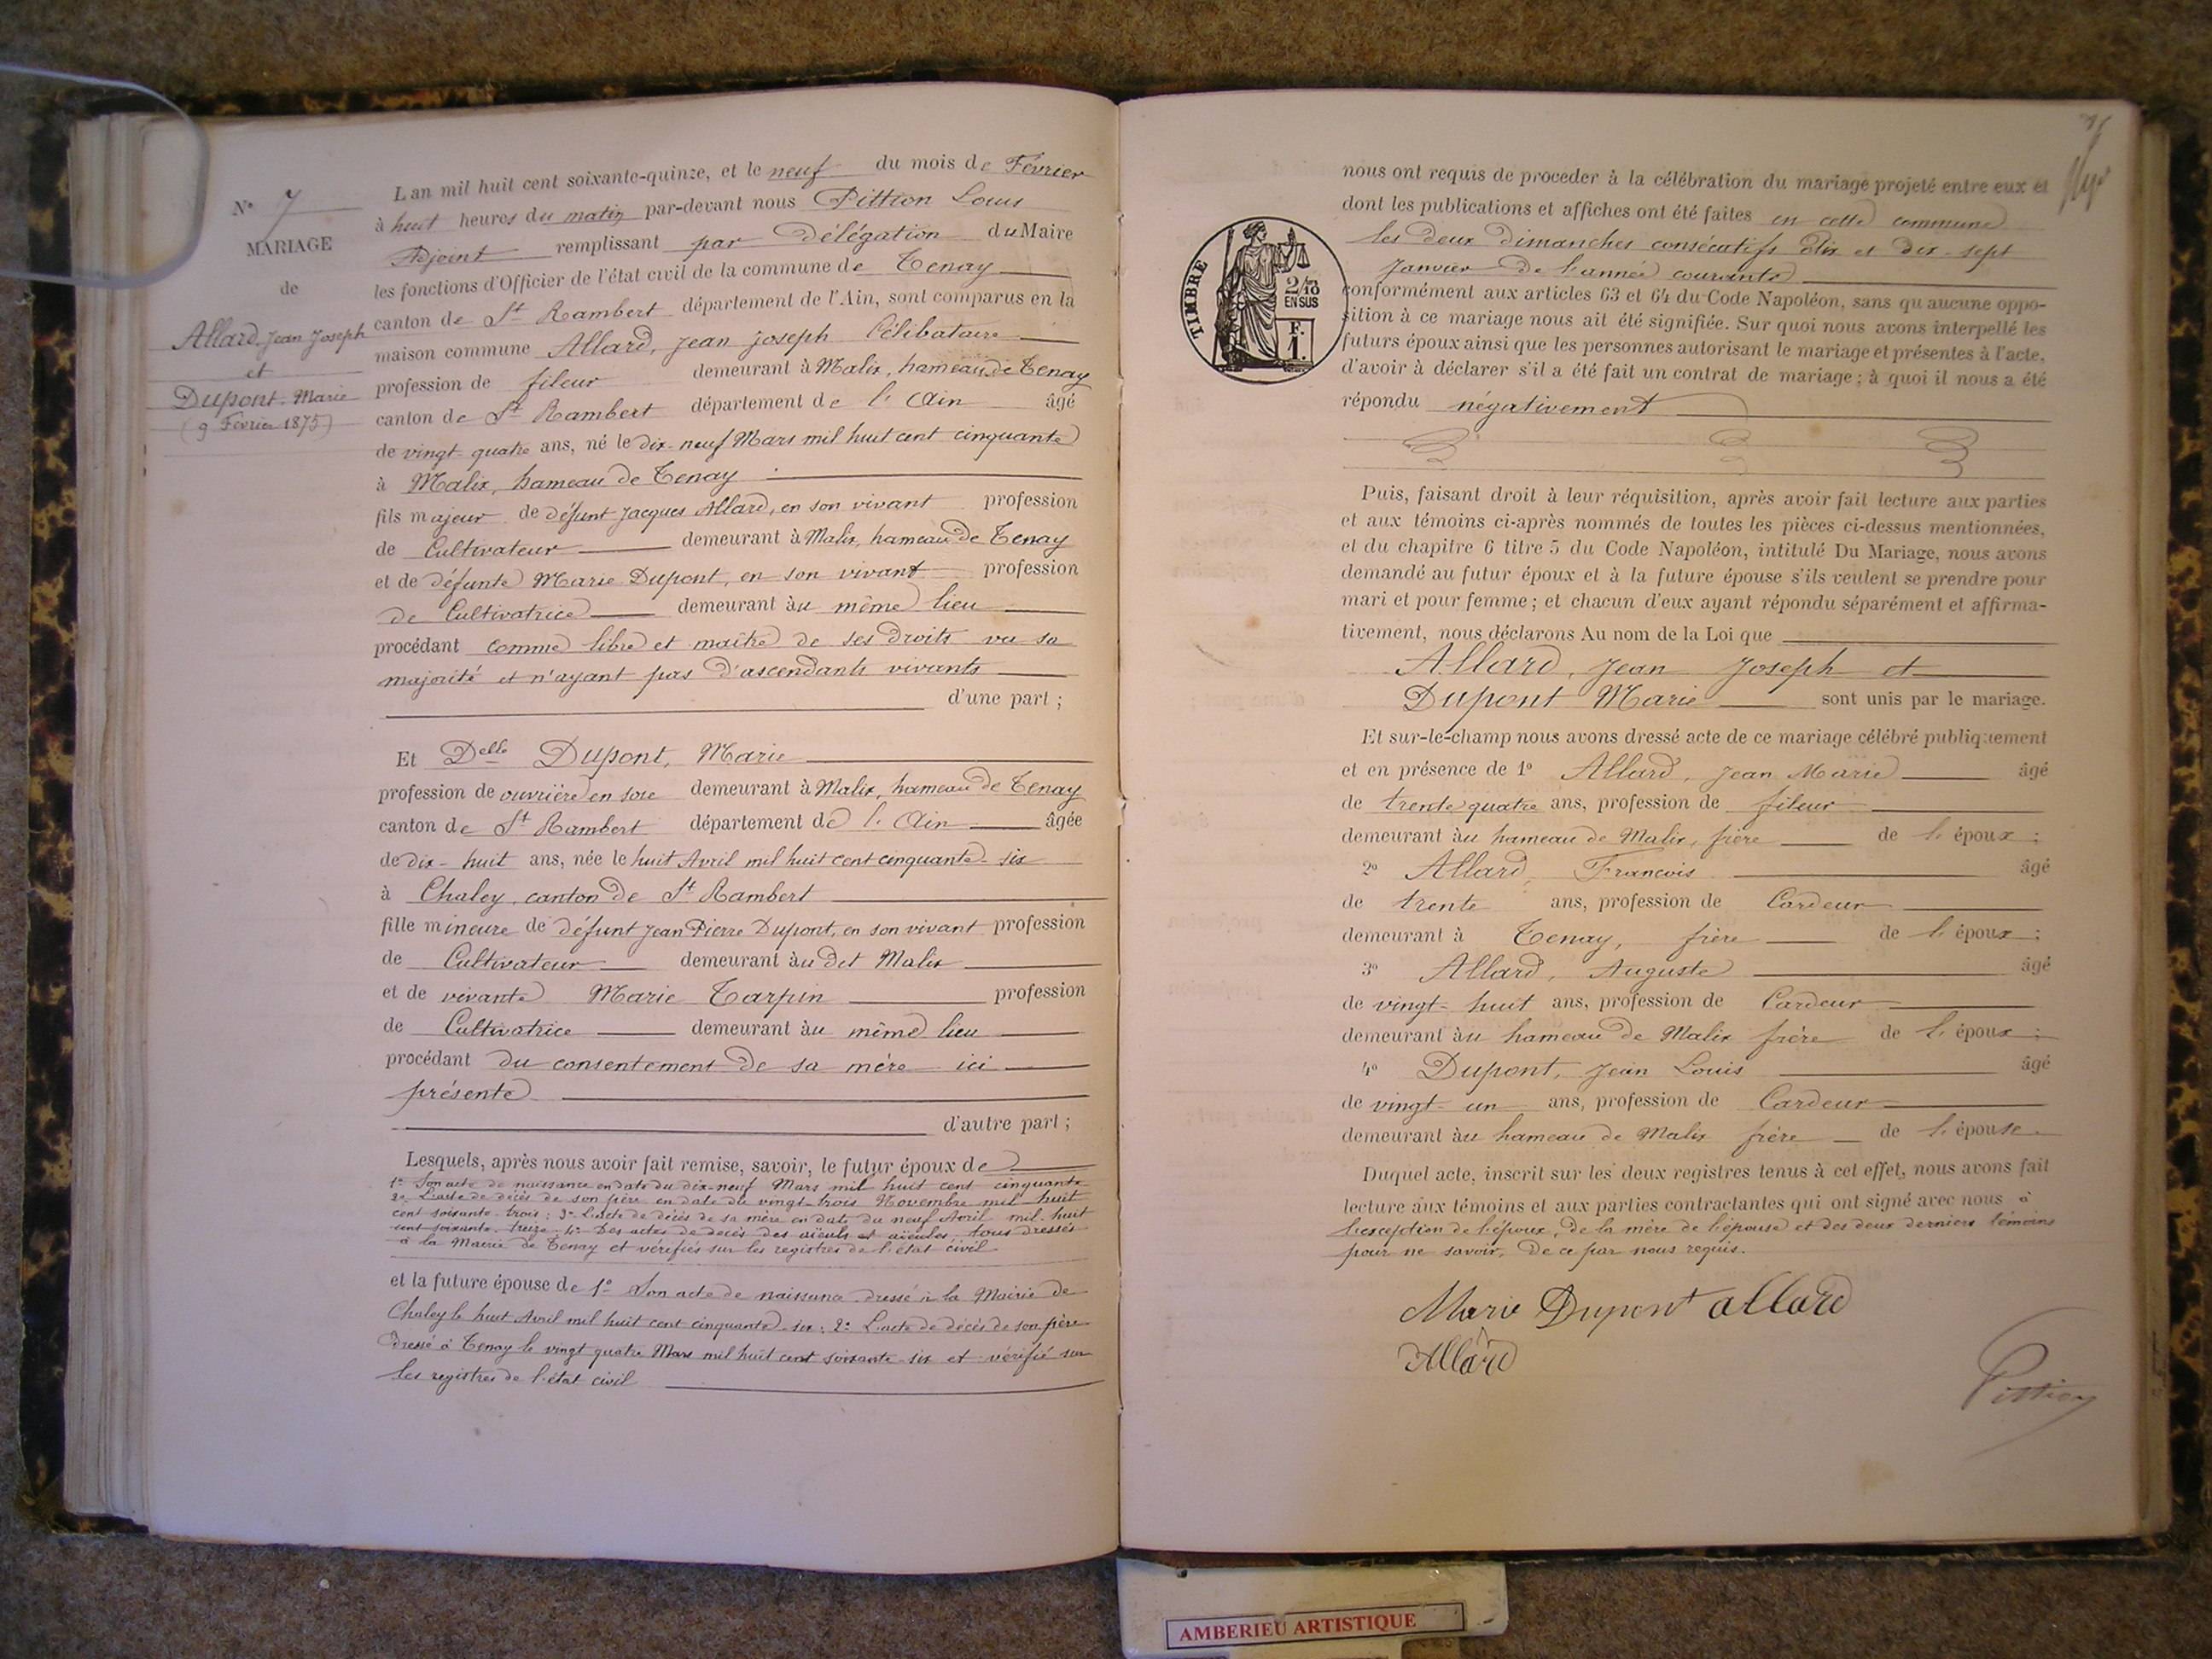 N° 7
MARIAGE
de
Allard, Jean Joseph
et
Dupont Marie
(9 Février 1875)
L'an mil huit cent soixante-quinze, et le neuf du mois de Février
à huit heures du matin par-devant nous Pittion Louis
Adjoint remplissant par délégation du Maire
les fonctions d'Officier de l'état civil de la commune de Tenay
canton de St Rambert département de l'Ain, sont comparus en la
maison commune Allard, Jean Joseph Célibataire
profession de fileur demeurant à Malix, hameau de Tenay
canton de St Rambert département de l'Ain âgé
de vingt-quatre ans, né le dix-neuf Mars mil huit cent cinquante
à Malix, hameau de Tenay
fils majeur de défunt Jacques Allard, en son vivant profession
de Cultivateur demeurant à Malix, hameau de Tenay
et de défunte Marie Dupont, en son vivant profession
de Cultivatrice demeurant au même lieu
procédant comme libre et maître de ses droits vu sa
majorité et n'ayant pas d'ascendants vivants
d'une part ;
Et Delle Dupont, Marie
profession de ouvrière en soie demeurant à Malix, hameau de Tenay
canton de St Rambert département de l'Ain âgée
de dix-huit ans, née le huit Avril mil huit cent cinquante-six
à Chaley, canton de St Rambert
fille mineure de défunt Jean Pierre Dupont, en son vivant profession
de Cultivateur demeurant au dit Malix
et de vivante Marie Tarpin profession
de Cultivatrice demeurant au même lieu
procédant du consentement de sa mère ici
présente
d'autre part ;
Lesquels, après nous avoir fait remise, savoir, le futur époux de
1° Son acte de naissance en date du dix-neuf Mars mil huit cent cinquante
2° L'acte de décès de son père en date du vingt-trois Novembre mil huit
cent soixante-trois ; 3° L'acte de décès de sa mère en date du neuf Avril mil-huit
cent soixante-treize 4° Des actes de décès des aïeuls et aïeules, tous dressés
à la Mairie de Tenay et vérifiés sur les registres de l'état civil
et la future épouse de 1° Son acte de naissance dressé à la Mairie de
Chaley le huit Avril mil huit cent cinquante-six ; 2° L'acte de décès de son père
dressé à Tenay le vingt quatre Mars mil huit cent soixante-six et vérifié sur
les registres de l'état civil
nous ont requis de procéder à la célébration du mariage projeté entre eux et
dont les publications et affiches ont été faites en cette commune
les deux dimanches consécutifs dix et dix-sept
Janvier de l'année courante
TIMBRE
2/10
EN SUS
F.
1.
conformément aux articles 63 et 64 du Code Napoléon, sans qu'aucune oppo-
sition à ce mariage nous ait été signifiée. Sur quoi nous avons interpellé les
futurs époux ainsi que les personnes autorisant le mariage et présentes à l'acte,
d'avoir à déclarer s'il a été fait un contrat de mariage ; à quoi il nous a été
répondu négativement
Puis, faisant droit à leur réquisition, après avoir fait lecture aux parties
et aux témoins ci-après nommés de toutes les pièces ci-dessus mentionnées,
et du chapitre 6 titre 5 du Code Napoléon, intitulé Du Mariage, nous avons
demandé au futur époux et à la future épouse s'ils veulent se prendre pour
mari et pour femme ; et chacun d'eux ayant répondu séparément et affirma-
tivement, nous déclarons Au nom de la Loi que
Allard, Jean Joseph et
Dupont Marie sont unis par le mariage.
Et sur-le-champ nous avons dressé acte de ce mariage célébré publiquement
et en présence de 1° Allard, Jean Marie âgé
de trente quatre ans, profession de fileur
demeurant au hameau de Malix, frère de l'époux ;
2° Allard, François âgé
de trente ans, profession de Cardeur
demeurant à Tenay, frère de l'époux ;
3° Allard, Auguste âgé
de vingt-huit ans, profession de Cardeur
demeurant au hameau de Malix frère de l'époux ;
4° Dupont, Jean Louis âgé
de vingt-un ans, profession de Cardeur
demeurant au hameau de Malix frère de l'épouse
Duquel acte, inscrit sur les deux registres tenus à cet effet, nous avons fait
lecture aux témoins et aux parties contractantes qui ont signé avec nous à
l'exception de l'époux, de la mère de l'épouse et des deux derniers témoins
pour ne savoir, de ce par nous requis.
Marie Dupont allard
Allard
Pittion
AMBERIEU ARTISTIQUE